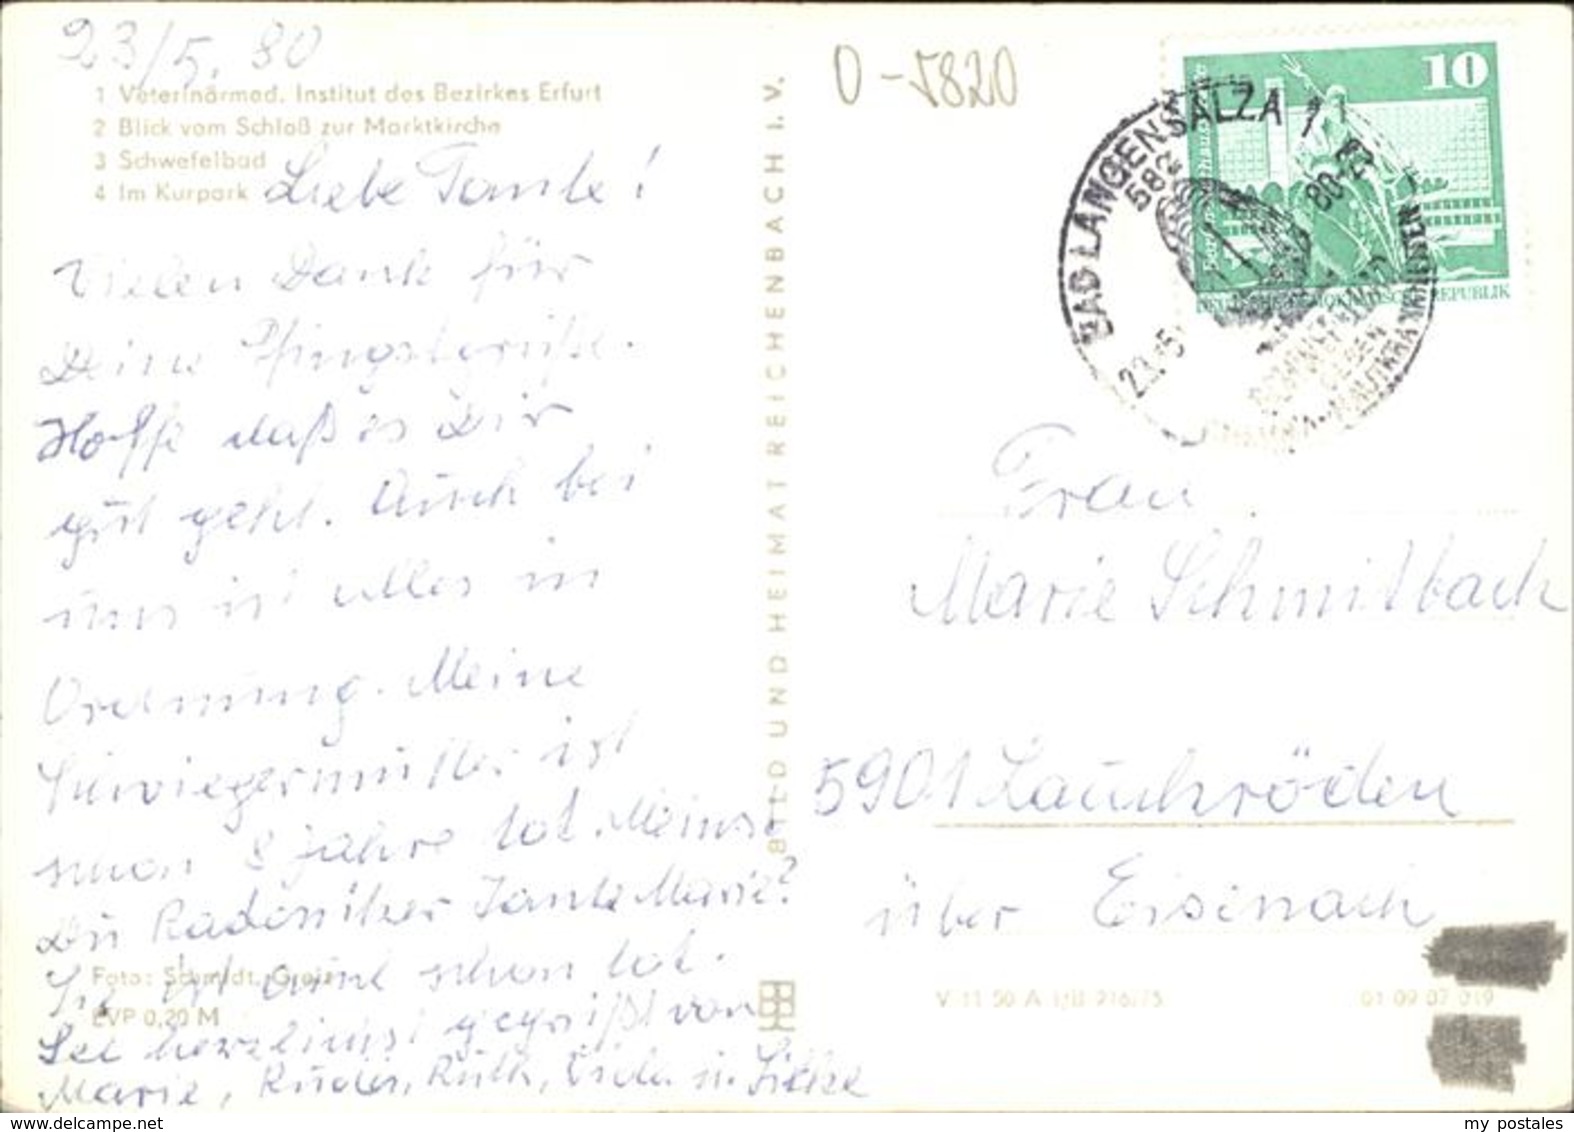 23/5. 80
1 Veterinärmed. Institut des Bezirkes Erfurt
2 Blick vom Schloß zur Marktkirche
3 Schwefelbad
4 Im Kurpark
Liebe Tante!
Vielen Dank für
Deine Pfingstgrüße.
Hoffe daß es Dir
gut geht. Auch bei
uns ist alles in
Ordnung. Meine
Schwiegermutter ist
schon 8 Jahre tot. Meinst
Du Tante Marie?
Sie ist auch schon tot.
Sei herzlichst gegrüßt von
Marie, Ruth, u. Silke
Foto: Schmidt, Greiz
EVP 0,20 M
BILD UND HEIMAT REICHENBACH I. V.
O-5820
10
REPUBLIK
BAD LANGENSALZA 1
582
23.-5
80-21
Frau
Marie Schmidtbach
5901 Lauchröden
über Eisenach
V 11 50 A 1/B 216/75
01 09 07 019
www.delcampe.net
my postales